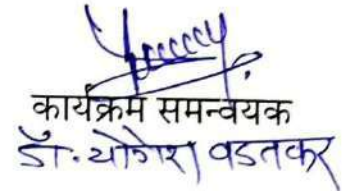 कार्यक्रम समन्वयक
डॉ. योगेश वडतकर